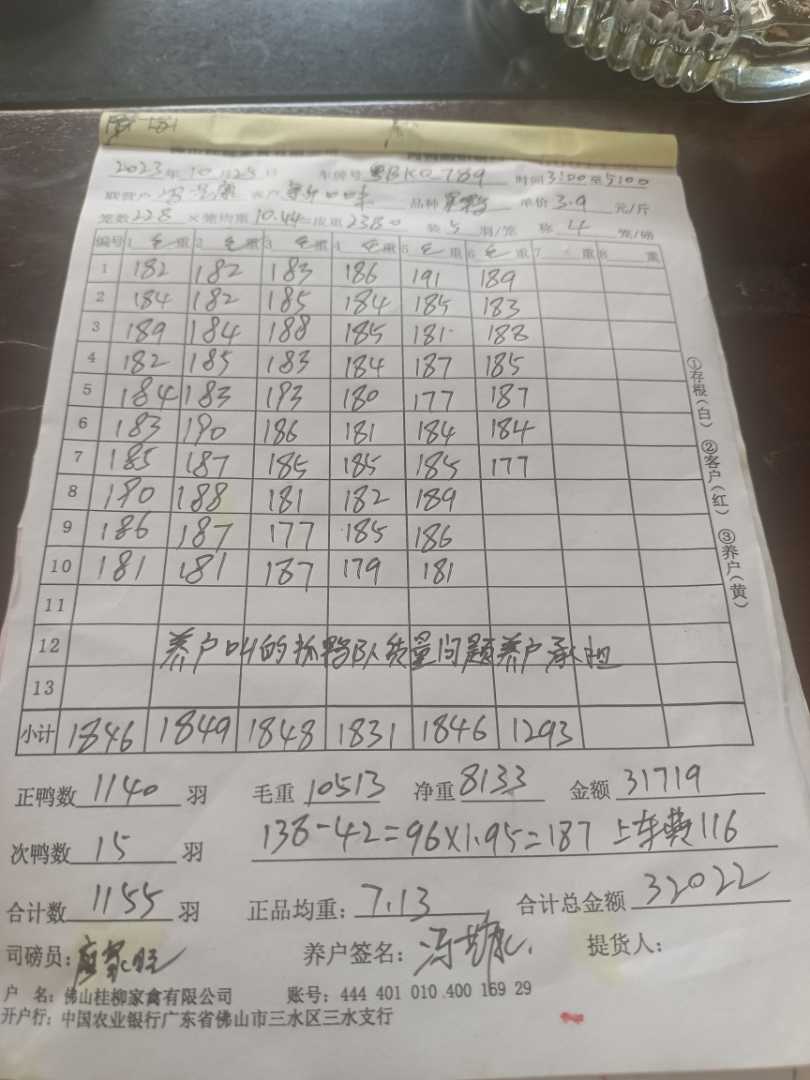 2023年10月25日 车牌号 粤BKQ789 时间3:00至5:00
联营户 客户 品种 单价3.9元/斤
笼数228×笼均重10.44=皮重2380 装5羽/笼 称4笼/磅
编号 1毛重 2毛重 3毛重 4毛重 5毛重 6毛重 7 重 8 重
1 182 182 183 186 191 189
2 184 182 185 184 185 183
3 189 184 188 185 181 188
4 182 185 183 184 187 185
5 184 183 193 180 177 187
6 183 190 186 181 184 184
7 185 187 185 185 185 177
8 190 188 181 182 189
9 186 187 177 185 186
10 181 181 187 179 181
11
12 养户叫的抓鸭队质量问题养户承担
13
小计 1846 1849 1848 1831 1846 1293
正鸭数1140羽 毛重10513 净重8133 金额31719
次鸭数15羽 138-42=96×1.95=187 上车费116
合计数1155羽 正品均重:7.13 合计总金额32022
司磅员: 养户签名: 提货人:
户 名:佛山桂柳家禽有限公司 账号:444 401 010 400 159 29
开户行:中国农业银行广东省佛山市三水区三水支行
①存根(白) ②客户(红) ③养户(黄)